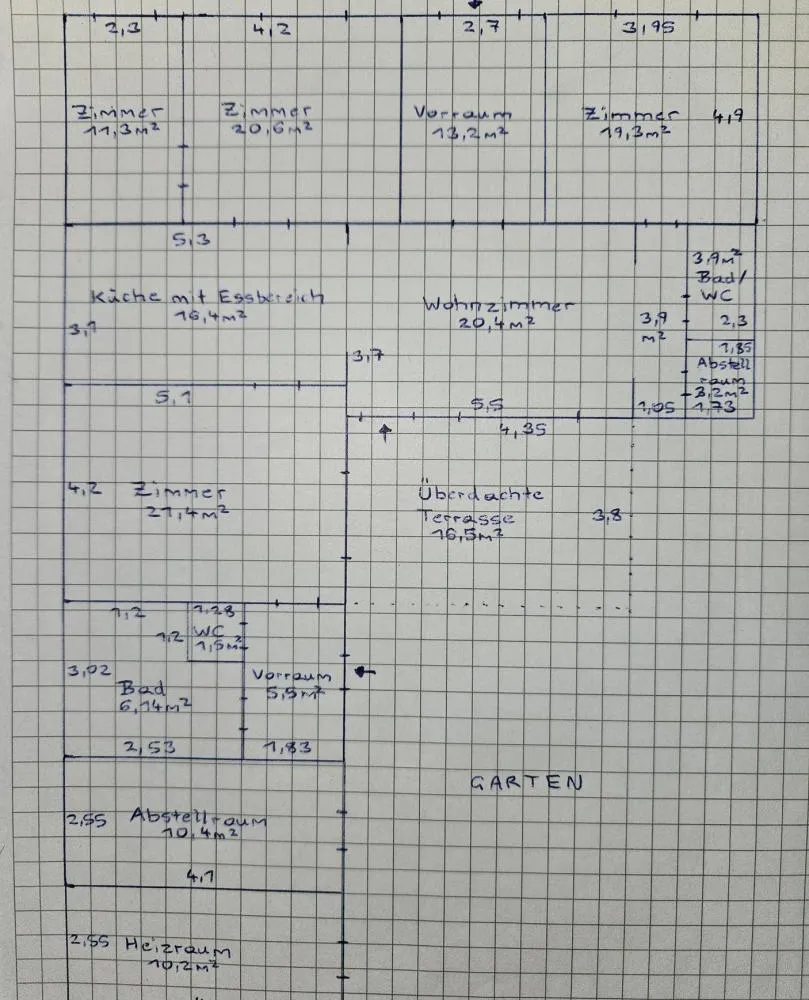 2,3
4,2
2,7
3,95
Zimmer
11,3m²
Zimmer
20,6m²
Vorraum
13,2m²
Zimmer
19,3m²
4,9
5,3
Küche mit Essbereich
16,4m²
3,1
Wohnzimmer
20,4m²
3,7
5,5
3,9
m²
1,05
3,9m²
Bad/
WC
2,3
1,85
Abstell
raum
3,2m²
1,73
5,1
4,2
Zimmer
21,4m²
4,35
Überdachte
Terrasse
16,5m²
3,8
1,2
1,28
1,2
WC
1,5m²
3,02
Bad
6,14m²
2,53
Vorraum
5,5m²
1,83
GARTEN
2,55
Abstellraum
10,4m²
4,1
2,55
Heizraum
10,2m²